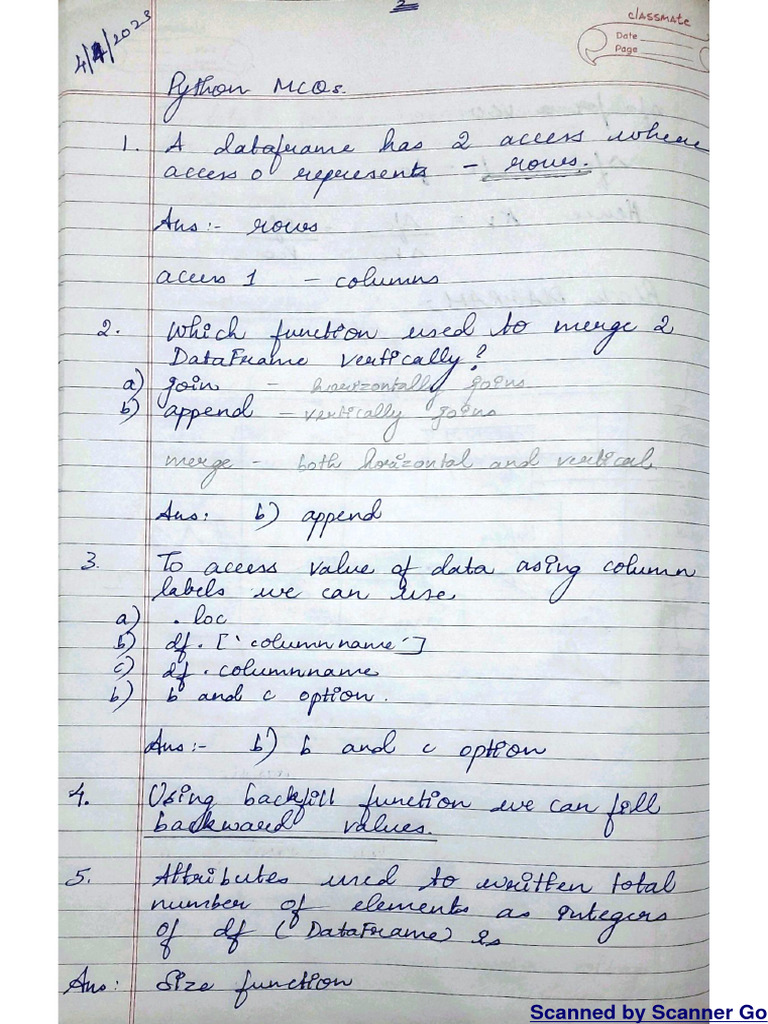 2
classmate
Date
Page
4/4/2023
Python MCQs.
1. A dataframe has 2 access where
access 0 represents - rows.
Ans:- rows
access 1 - columns
2. Which function used to merge 2
DataFrame vertically?
a) join - horizontally joins
b) append - vertically joins
merge - both horizontal and vertical
Ans: b) append
3. To access value of data using column
labels we can use
a) .loc
b) df.['columnname']
c) df.columnname
b) b and c option.
Ans:- b) b and c option
4. Using backfill function we can fill
backward values.
5. Attributes used to written total
number of elements as integers
of df (DataFrame) is
Ans: Size function
Scanned by Scanner Go